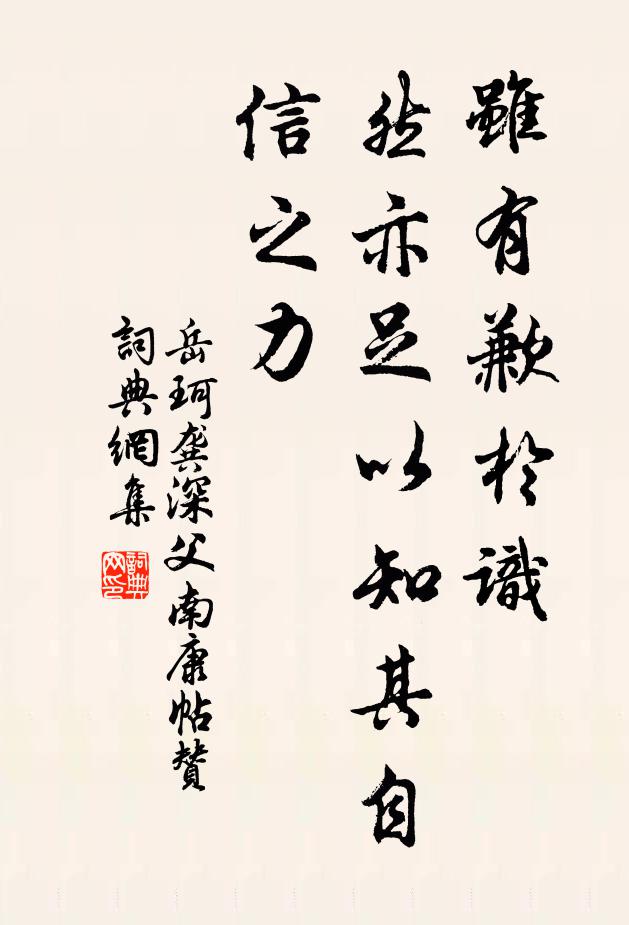 雖有歉於識
然亦足以知其自
信之力
岳珂龔深父南康帖贊
詞典網集
詞典網印